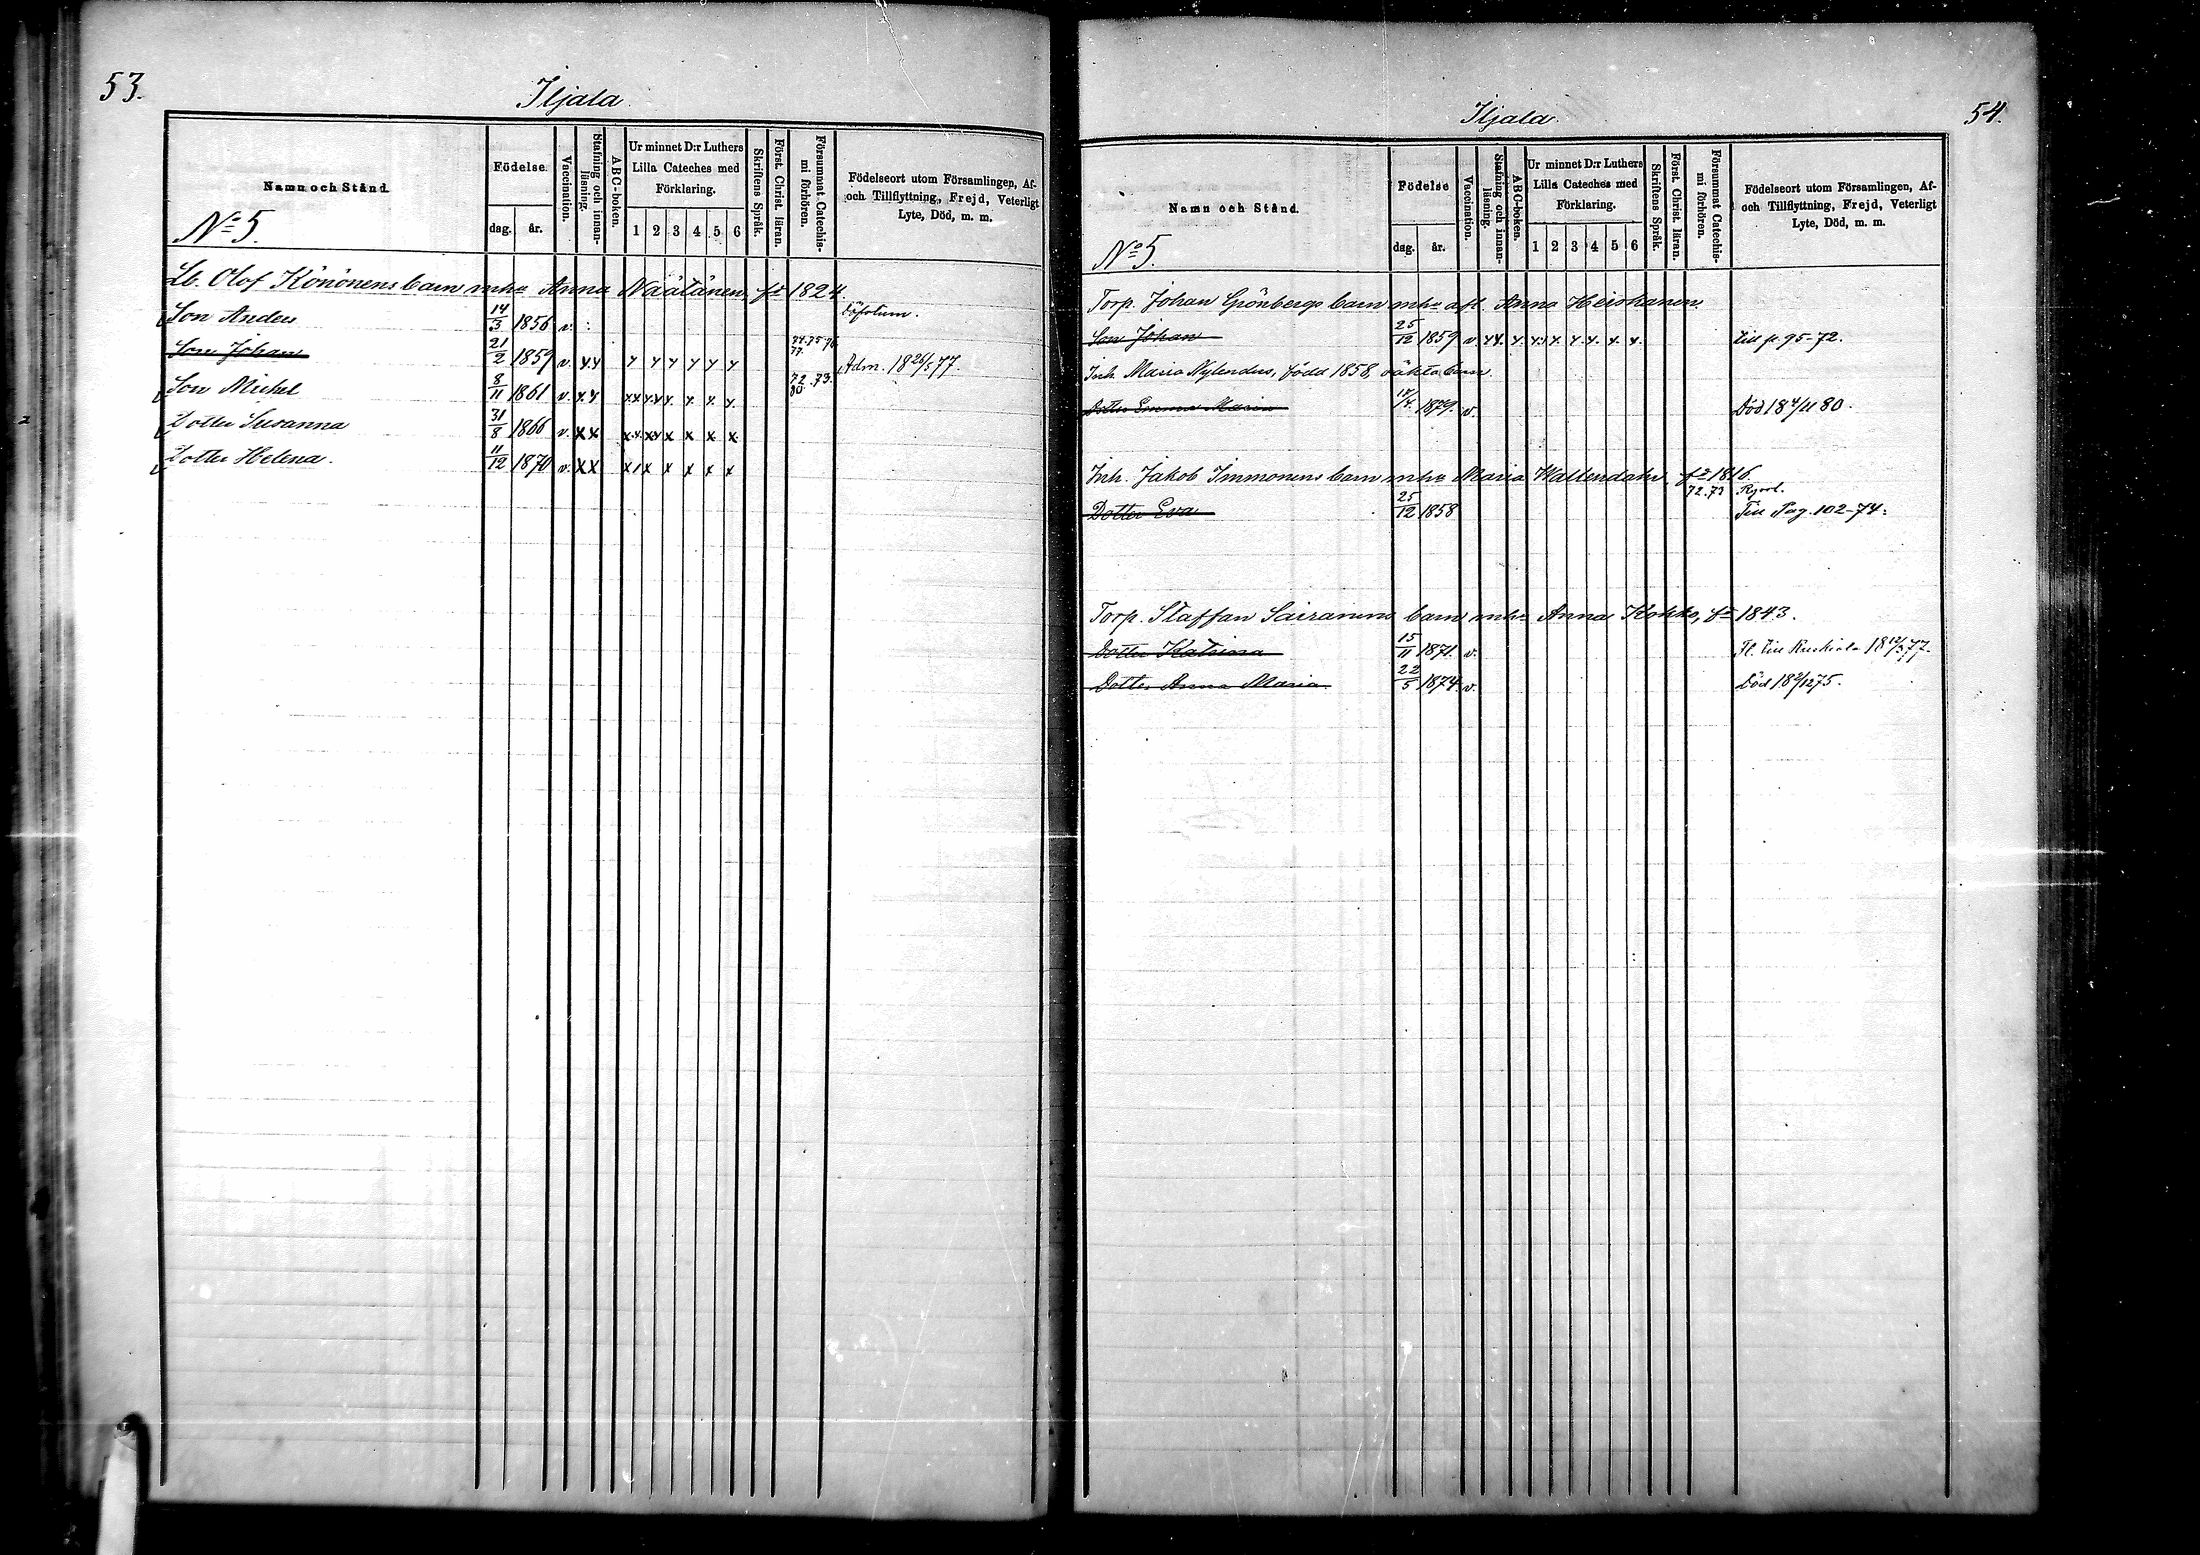 53.
Iljala
Namn och Stånd.
Födelse.
dag. år.
Vaccination.
Stafning och innanläsning.
ABC-boken.
Ur minnet D:r Luthers
Lilla Cateches med
Förklaring.
1 2 3 4 5 6
Skriftens Språk.
Först. Christ. läran.
Försummat Catechismi förhören.
Födelseort utom Församlingen, Af-
och Tillflyttning, Frejd, Veterligt
Lyte, Död, m. m.
No 5.
Lb. Olof Könönens barn mhu Anna Näätänen, fd 1824
Son Anders 14/3 1856 v. Döfstum.
Son Johan 21/2 1859 v x x x x x x x x 74.75.76. 77. Adm. 18 26/5 77.
Son Mickel 8/11 1861 v. x. x x x x. x x. x. x. x. 72.73. 80
Dotter Susanna 31/8 1866 v. x x x. x. x x x x x. x.
Dotter Helena. 11/12 1870 v. x x x 1 x x x x x
54.
Iljala.
Namn och Stånd.
Födelse
dag. år.
Vaccination.
Stafning och innanläsning.
ABC-boken.
Ur minnet D:r Luthers
Lilla Cateches med
Förklaring.
1 2 3 4 5 6
Skriftens Språk.
Först. Christ. läran.
Försummat Catechismi förhören.
Födelseort utom Församlingen, Af-
och Tillflyttning, Frejd, Veterligt
Lyte, Död, m. m.
No 5.
Torp. Johan Grönbergs barn mhu afl. Anna Heiskanen.
Son Johan 25/12 1859 v x x. x. x. x x. x. x. x. x. till p. 95-72.
Inh. Maria Nylenders, född 1858, oäkta barn.
Dotter Emma Maria 1879. v. Död 18 4/11 80.
Inh. Jakob Immonens barn mhu Maria Waltendahr, fd 1816.
Dotter Eva 25/12 1858 72.73 Till Pag. 102-74.
Torp. Staffan Sairanens barn mhu Anna Kokko, fd 1843.
Dotter Katrina 15/11 1871. v. Fl. till Ruskiala 18 77.
Dotter Anna Maria 22/5 1874. v. Död 18 2/12 75.